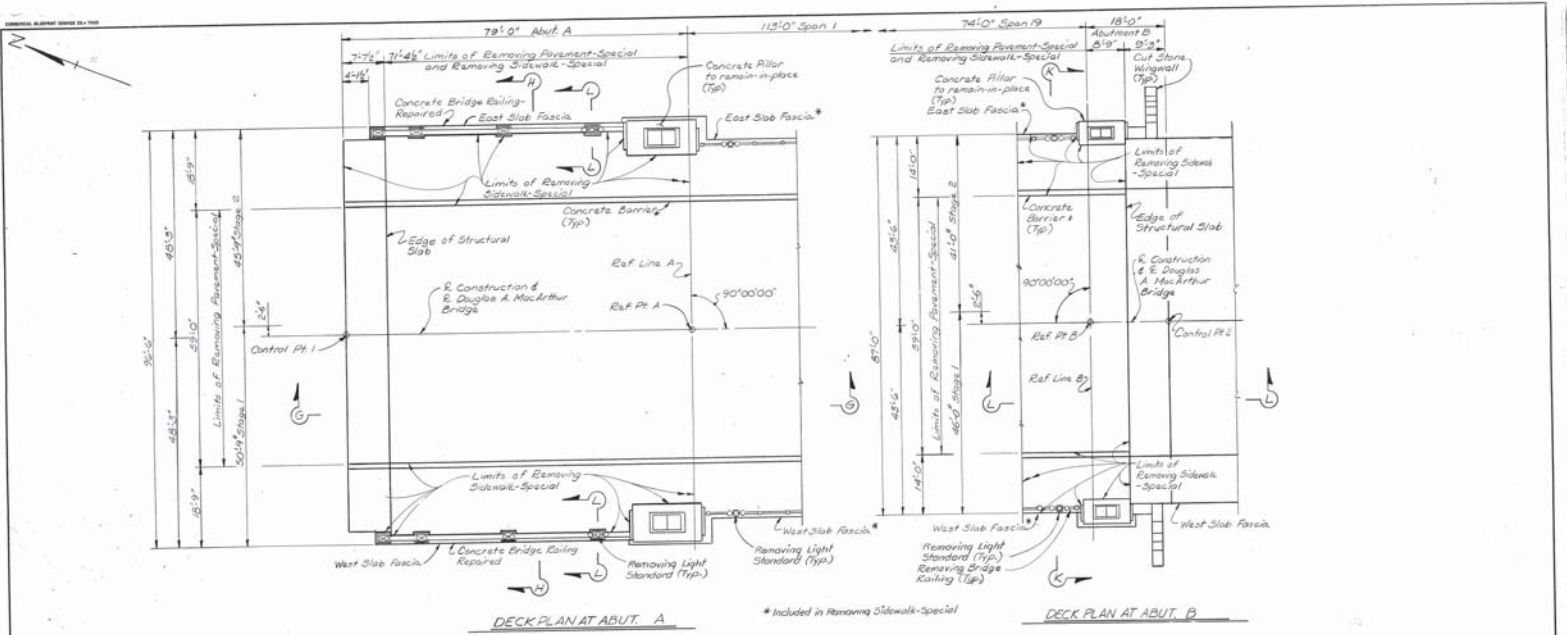 COMMERCIAL BLUEPRINT SERVICE
N
79'-0" Abut. A
113'-0" Span 1
7'-7½"
71'-4½" Limits of Removing Pavement-Special
and Removing Sidewalk-Special
4'-1½"
Concrete Pillar
to remain-in-place
(Typ.)
H
L
Concrete Bridge Railing-
Repaired
East Slab Fascia
East Slab Fascia*
L
Limits of Removing
Sidewalk-Special
Concrete Barrier*
(Typ.)
Edge of Structural
Slab
Ref. Line A
90°00'00"
℄ Construction &
℄ Douglas A. MacArthur
Bridge
Ref. Pt. A
Control Pt. 1
96'-6"
48'-3"
48'-3"
18'-9"
59'-0"
18'-9"
Limits of Removing Pavement-Special
45'-9" Stage 2
50'-9" Stage 1
2'-6"
G
G
Limits of Removing
Sidewalk-Special
L
West Slab Fascia*
West Slab Fascia
Concrete Bridge Railing
Repaired
L
Removing Light
Standard (Typ.)
Removing Light
Standard (Typ.)
H
DECK PLAN AT ABUT. A
* Included in Removing Sidewalk-Special
74'-0" Span 19
18'-0"
Abutment B
8'-9"
9'-3"
Limits of Removing Pavement-Special
and Removing Sidewalk-Special
K
Cut Stone
Wingwall
(Typ.)
Concrete Pillar
to remain-in-place
(Typ.)
East Slab Fascia*
Limits of
Removing Sidewalk
-Special
Concrete
Barrier *
(Typ.)
Edge of
Structural Slab
90°00'00"
℄ Construction
& ℄ Douglas
A. MacArthur
Bridge
Ref. Pt. B
Control Pt. 2
Ref. Line B
87'-0"
43'-6"
43'-6"
14'-0"
59'-0"
14'-0"
Limits of Removing Pavement-Special
41'-0" Stage 2
46'-0" Stage 1
2'-6"
L
L
Limits of
Removing Sidewalk
-Special
West Slab Fascia*
West Slab Fascia
Removing Light
Standard (Typ.)
Removing Bridge
Railing (Typ.)
K
DECK PLAN AT ABUT. B